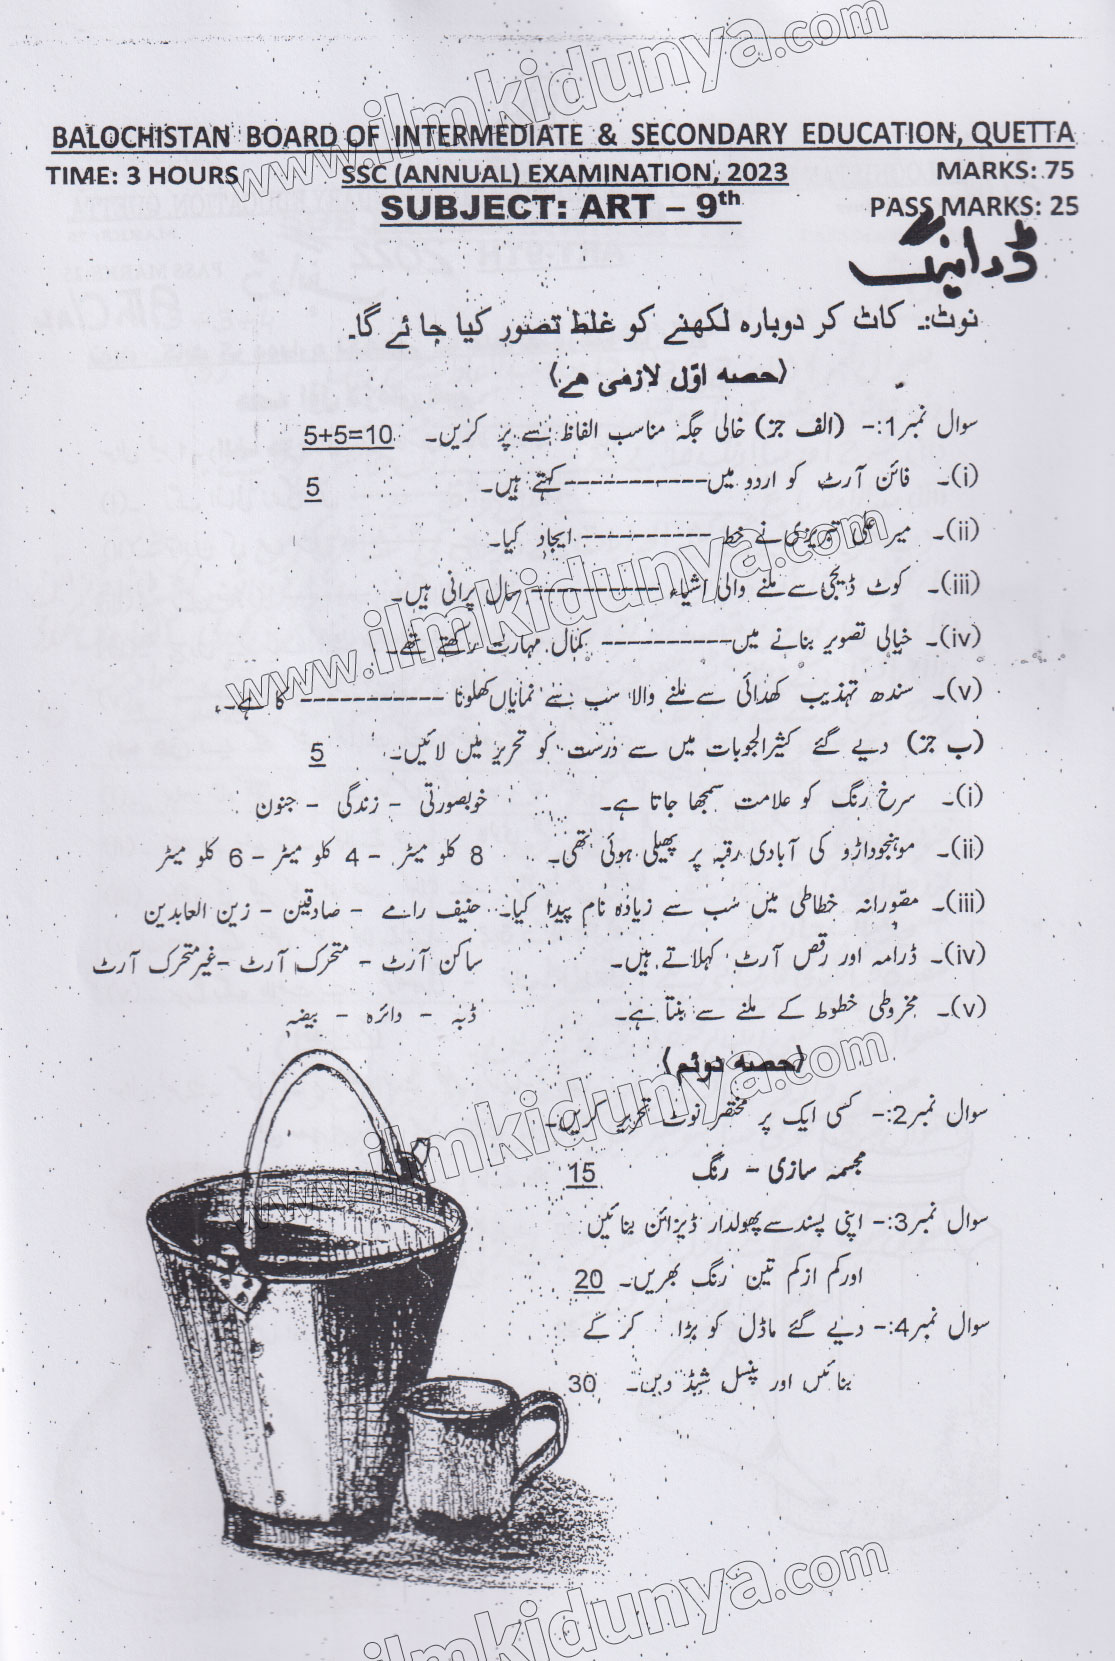 BALOCHISTAN BOARD OF INTERMEDIATE & SECONDARY EDUCATION, QUETTA
TIME: 3 HOURS SSC (ANNUAL) EXAMINATION, 2023 MARKS: 75
SUBJECT: ART – 9th PASS MARKS: 25
ڈرائینگ
نوٹ:۔ کاٹ کر دوبارہ لکھنے کو غلط تصور کیا جائے گا۔
(حصہ اوّل لازمی ہے)
سوال نمبر1:- (الف جز) خالی جگہ مناسب الفاظ سے پر کریں۔ 5+5=10
(i)۔ فائن آرٹ کو اردو میں----------کہتے ہیں۔ 5
(ii)۔ میر علی تبریزی نے خط ---------- ایجاد کیا۔
(iii)۔ کوٹ ڈیجی سے ملنے والی اشیاء ---------- سال پرانی ہیں۔
(iv)۔ خیالی تصویر بنانے میں---------- کمال مہارت رکھتے تھے۔
(v)۔ سندھ تہذیب کھدائی سے ملنے والا سب سے نمایاں کھلونا ---------- کا ہے۔
(ب جز) دیے گئے کثیرالجوبات میں سے درست کو تحریر میں لائیں۔ 5
(i)۔ سرخ رنگ کو علامت سمجھا جاتا ہے۔ خوبصورتی - زندگی - جنون
(ii)۔ موہنجوداڑو کی آبادی رقبہ پر پھیلی ہوئی تھی۔ 8 کلو میٹر - 4 کلو میٹر - 6 کلو میٹر
(iii)۔ مصّورانہ خطاطی میں سب سے زیادہ نام پیدا کیا۔ حنیف رامے - صادقین - زین العابدین
(iv)۔ ڈرامہ اور رقص آرٹ کہلاتے ہیں۔ ساکن آرٹ - متحرک آرٹ -غیرمتحرک آرٹ
(v)۔ مخروطی خطوط کے ملنے سے بنتا ہے۔ ڈبہ - دائرہ - بیضہ
(حصہ دوئم)
سوال نمبر2:- کسی ایک پر مختصر نوٹ تحریر کریں۔
مجسمہ سازی - رنگ 15
سوال نمبر3:- اپنی پسند سے پھولدار ڈیزائن بنائیں
اورکم ازکم تین رنگ بھریں۔ 20
سوال نمبر4:- دیے گئے ماڈل کو بڑا کر کے
بنائیں اور پنسل شیڈ دیں۔ 30
www.ilmkidunya.com
www.ilmkidunya.com
www.ilmkidunya.com
ilmkidunya.com